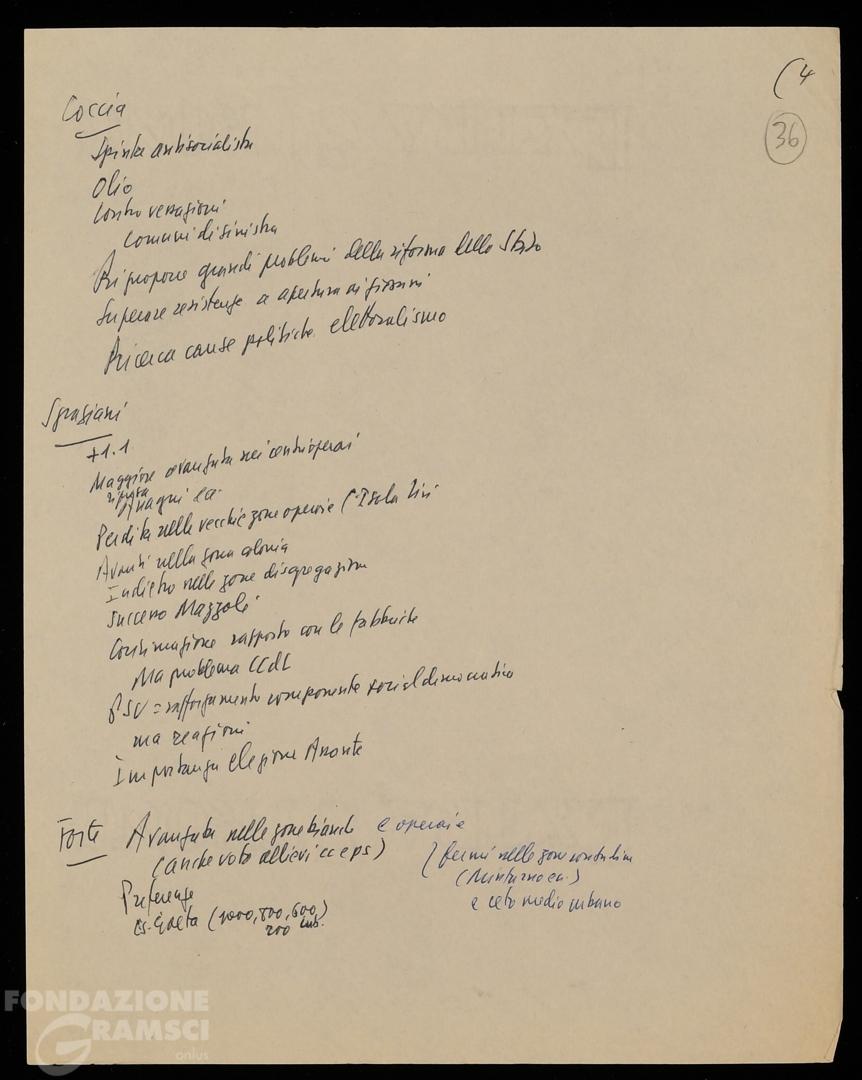 (4
36
Coccia
Spinta antisocialista
Olio
Contro vessazioni
comuni di sinistra
Ripropone grandi problemi della riforma dello Stato
Superare resistenze a apertura ai giovani
Ricerca cause politiche elettoralismo
Sgraziani
+1.1
Maggiore avanzata nei centri operai
Anagni ec.
Perdita nelle vecchie zone operaie (Isola Liri
Avanti nella zona colonia
Indietro nelle zone disgregazione
Successo Mazzoli
Continuazione rapporto con le fabbriche
Ma problema CCdL
PSU = rafforzamento componente socialdemocratica
ma reazioni
Importanza elezione Assante
Forte Avanzata nelle zone bianche e operaie
(anche voto allievi cc e ps)
(fermi nelle zone contadine
(Minturno ec.)
e ceto medio urbano
Preferenze
Es. Gaeta (2000, 800, 600)
200